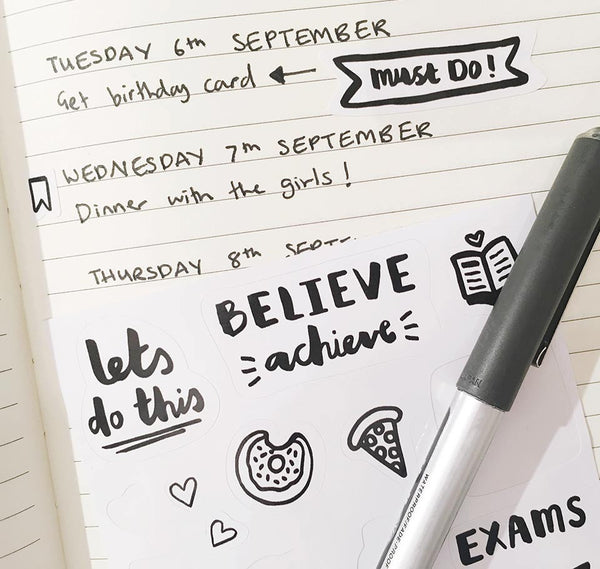 TUESDAY 6th SEPTEMBER
Get birthday card
MUST DO!
WEDNESDAY 7th SEPTEMBER
Dinner with the girls!
THURSDAY 8th
BELIEVE
achieve
lets
do this
WATERPROOF·FADE-PROOF
EXAMS